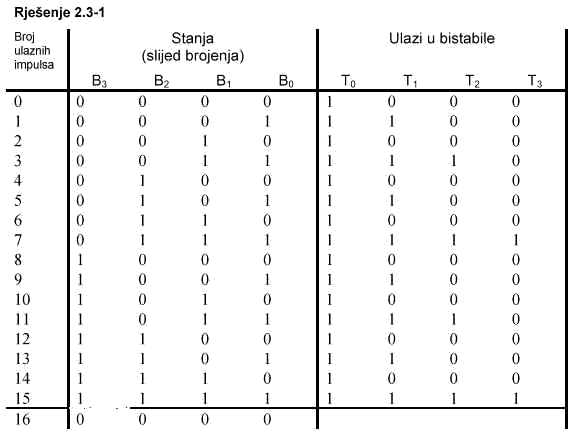 Rješenje 2.3-1
Broj ulaznih impulsa Stanja (slijed brojenja) Ulazi u bistabile
B3 B2 B1 B0 T0 T1 T2 T3
0 0 0 0 0 1 0 0 0
1 0 0 0 1 1 1 0 0
2 0 0 1 0 1 0 0 0
3 0 0 1 1 1 1 1 0
4 0 1 0 0 1 0 0 0
5 0 1 0 1 1 1 0 0
6 0 1 1 0 1 0 0 0
7 0 1 1 1 1 1 1 1
8 1 0 0 0 1 0 0 0
9 1 0 0 1 1 1 0 0
10 1 0 1 0 1 0 0 0
11 1 0 1 1 1 1 1 0
12 1 1 0 0 1 0 0 0
13 1 1 0 1 1 1 0 0
14 1 1 1 0 1 0 0 0
15 1 1 1 1 1 1 1 1
16 0 0 0 0